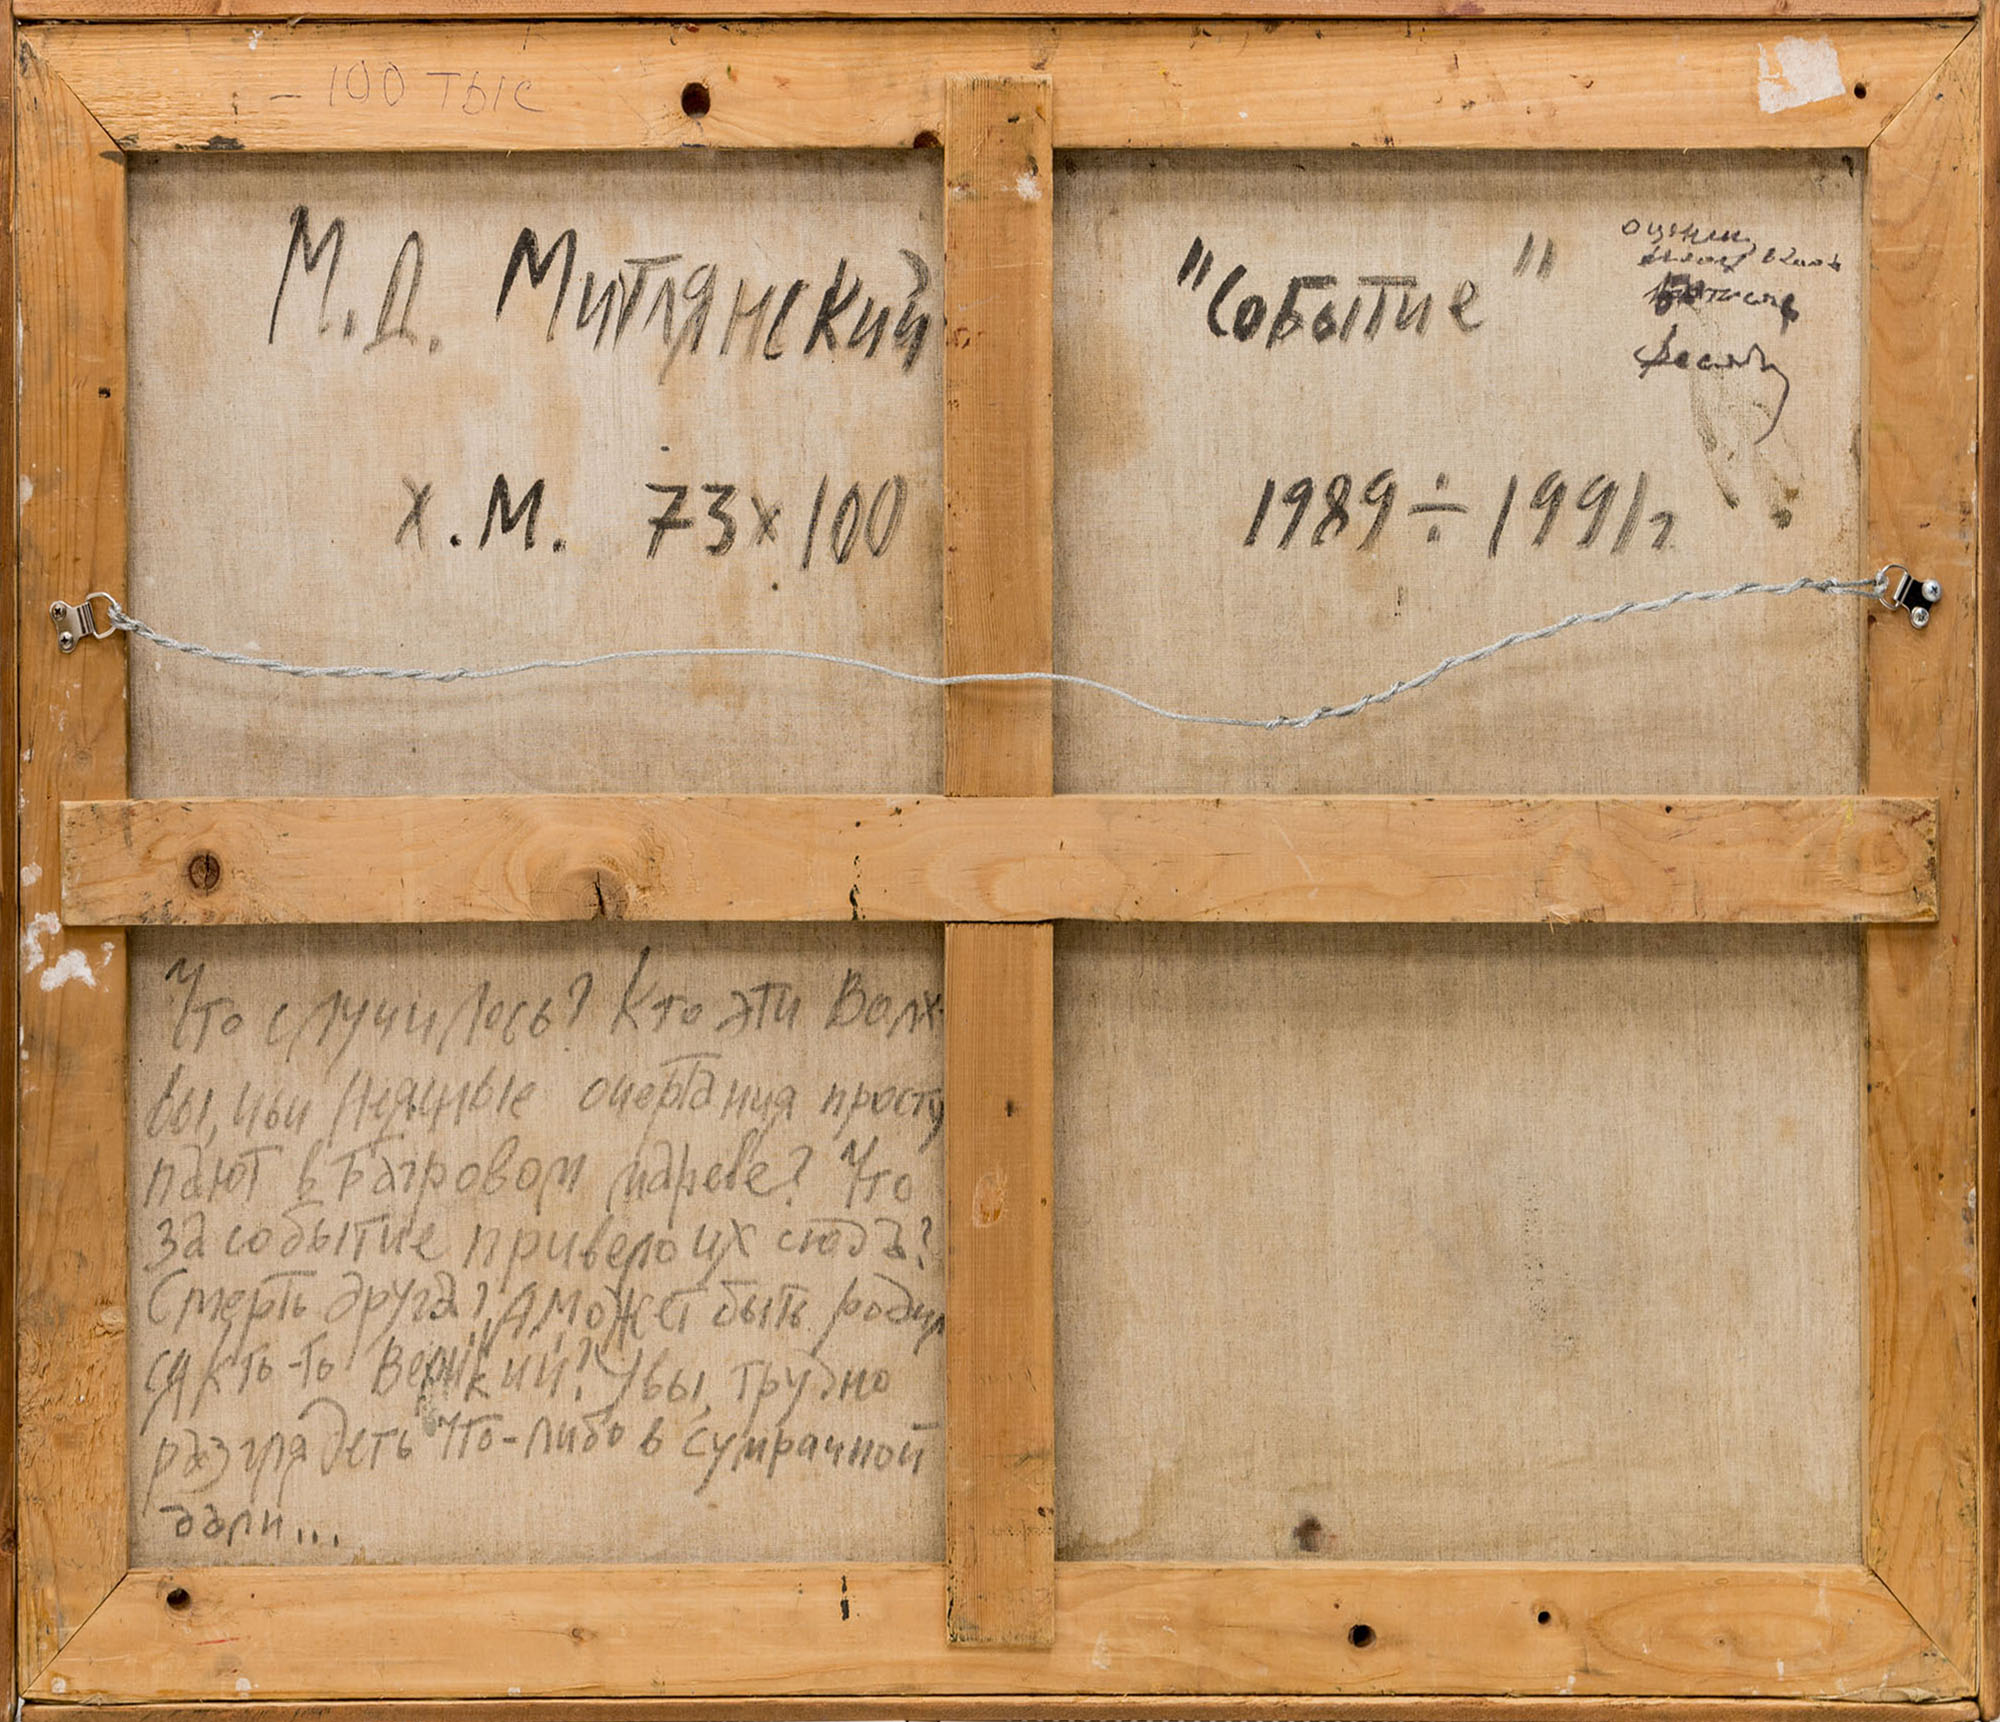 - 100 тыс
М.Д. Митлянский
"Событие"
х.м. 73х100
1989÷1991г
Что случилось? Кто эти Волх-
вы, чьи неясные очертания просту
пают в багровом мареве? Что
за событие привело их сюдъ?
Смерть друга? А может быть родил
ся кто-то Великий? Увы, трудно
разглядеть что-либо в сумрачной
дали...